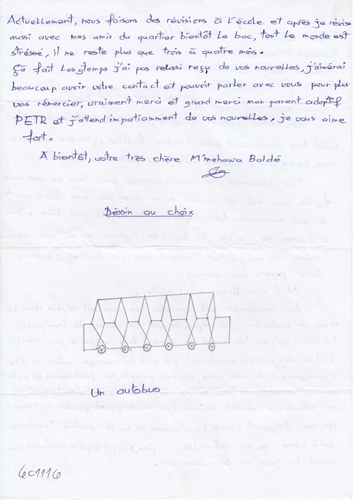 Actuellement, nous faisons des révisions à l'école et après je révise
aussi avec mes amis du quartier bientôt le bac, tout le monde est
stréssé, il ne reste plus que trois à quatre mois.
Ça fait longtemps j'ai pas reçu de vos nouvelles, j'aimerai
beaucoup avoir votre contact et pouvoir parler avec vous pour plus
vous rémercier, vraiment merci et grand merci mon parent adoptif
PETR et j'attend impatiamment de vos nouvelles, je vous aime
fort.
A bientôt, votre très chère M'mahawa Baldé
Déssin au choix
Un autobus
6C1116